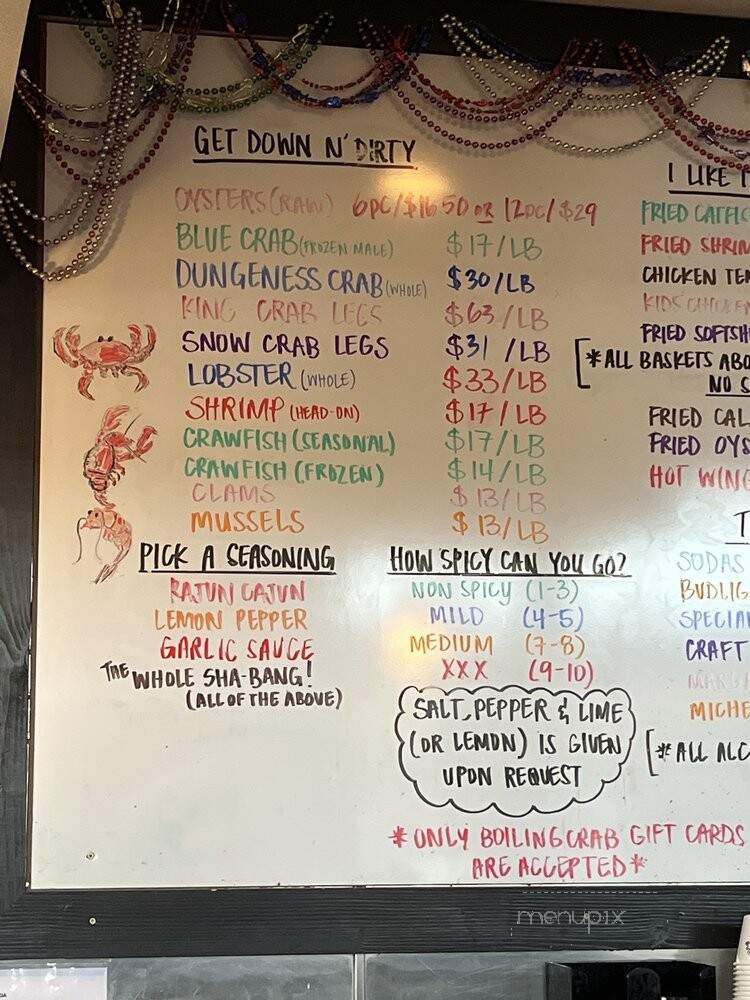 GET DOWN N' DIRTY
OYSTERS (RAW) 6PC/$16.50 OR 12PC/$29
BLUE CRAB (FROZEN MALE) $17/LB
DUNGENESS CRAB (WHOLE) $30/LB
KING CRAB LEGS $63/LB
SNOW CRAB LEGS $31/LB
LOBSTER (WHOLE) $33/LB
SHRIMP (HEAD-ON) $17/LB
CRAWFISH (SEASONAL) $17/LB
CRAWFISH (FROZEN) $14/LB
CLAMS $13/LB
MUSSELS $13/LB
PICK A SEASONING
RAJUN CAJUN
LEMON PEPPER
GARLIC SAUCE
THE WHOLE SHA-BANG!
(ALL OF THE ABOVE)
HOW SPICY CAN YOU GO?
NON SPICY (1-3)
MILD (4-5)
MEDIUM (7-8)
XXX (9-10)
SALT, PEPPER & LIME
(OR LEMON) IS GIVEN
UPON REQUEST
*ONLY BOILINGCRAB GIFT CARDS
ARE ACCEPTED*
I LIKE
FRIED CATFIC
FRIED SHRIM
CHICKEN TEN
KIDS CHICKEN
FRIED SOFTSH
[*ALL BASKETS ABO
NO S
FRIED CAL
FRIED OYS
HOT WING
SODAS
BUDLIG
SPECIAL
CRAFT
MICHE
[*ALL ALC
menupix